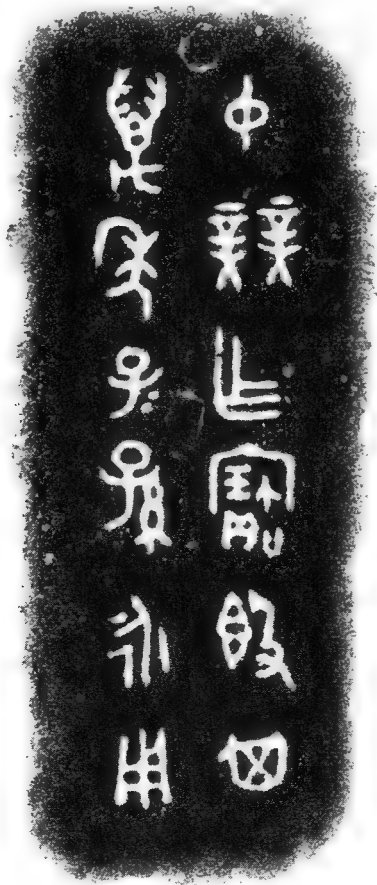 中辡乍寶𣪘其
萬年子孫永用